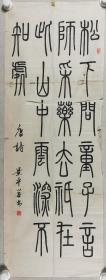 松下問童子言
師采藥去祇在
此山中雲深不
知處
唐詩